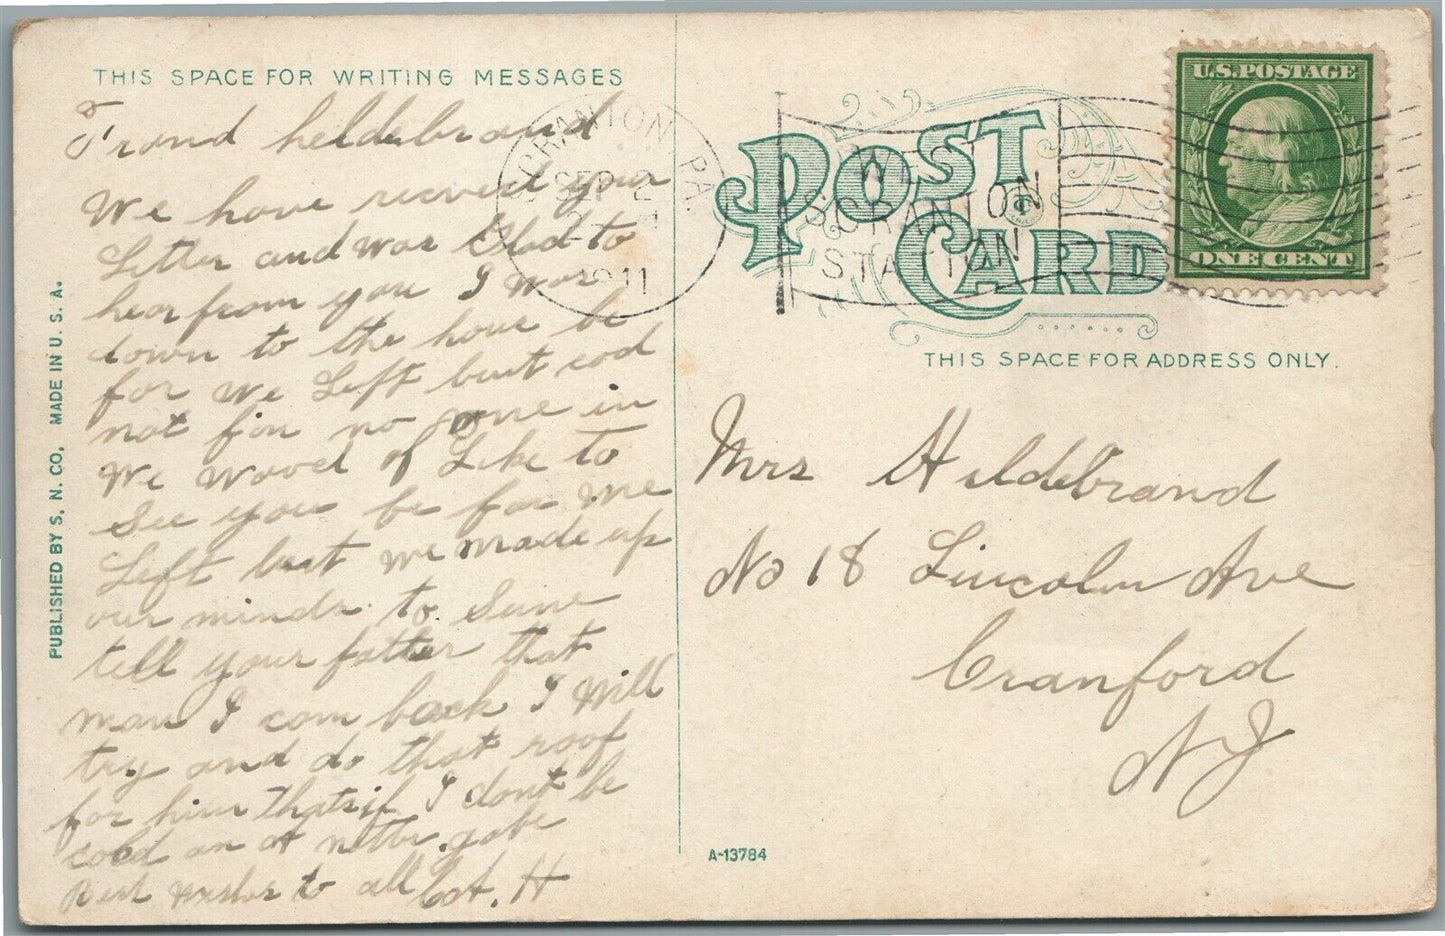 THIS SPACE FOR WRITING MESSAGES
Frend heldebrand
We have recived your
Letter and was Glad to
hear from you I was
down to the hous be
for we Left but cod
not fin no one in
We wood of Like to
See you be for we
Left but we made up
our minds to Sune
tell your father that
man I com back I Will
try and do that roof
for him thats if I dont be
cold on a nother gobe
Best Wishes to all Cot. H
PUBLISHED BY S. N. CO. MADE IN U. S. A.
SCRANTON PA.
SEP 2
1911
WEST
SCRANTON
STATION
POST CARD
U.S. POSTAGE
ONE CENT
THIS SPACE FOR ADDRESS ONLY.
Mrs Hildebrand
No 18 Lincoln Ave
Cranford
N J
A-13784